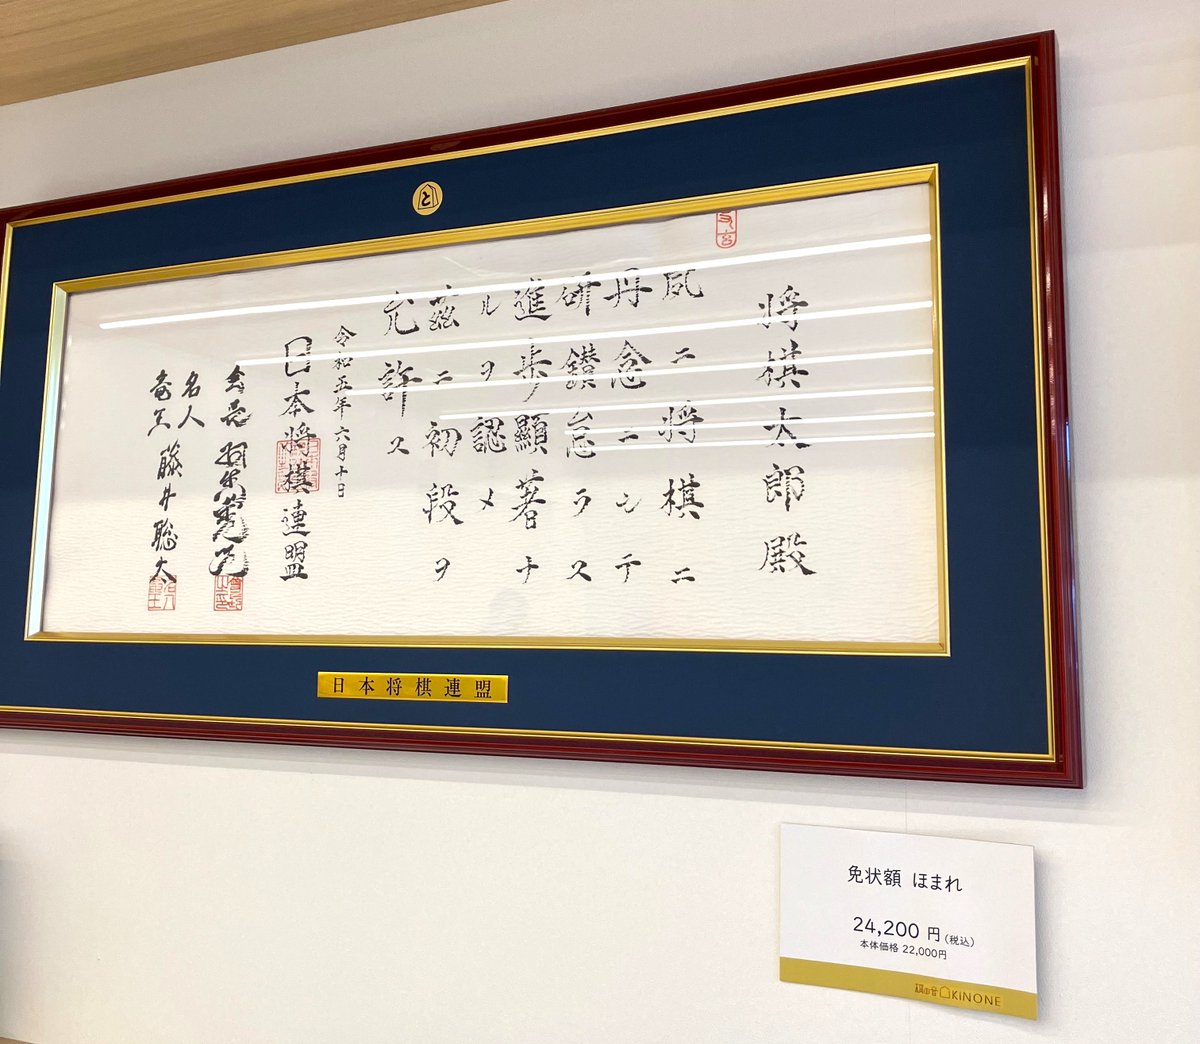 と
将棋太郎殿
夙ニ将棋ニ
丹念ニシテ
研鑚怠ラス
進歩顯著ナ
ルヲ認メ
茲ニ初段ヲ
允許ス
令和五年六月十日
日本将棋連盟
会長 羽生善治
名人
竜王 藤井聡太
日本将棋連盟
免状額 ほまれ
24,200 円(税込)
本体価格 22,000円
棋の音 KINONE